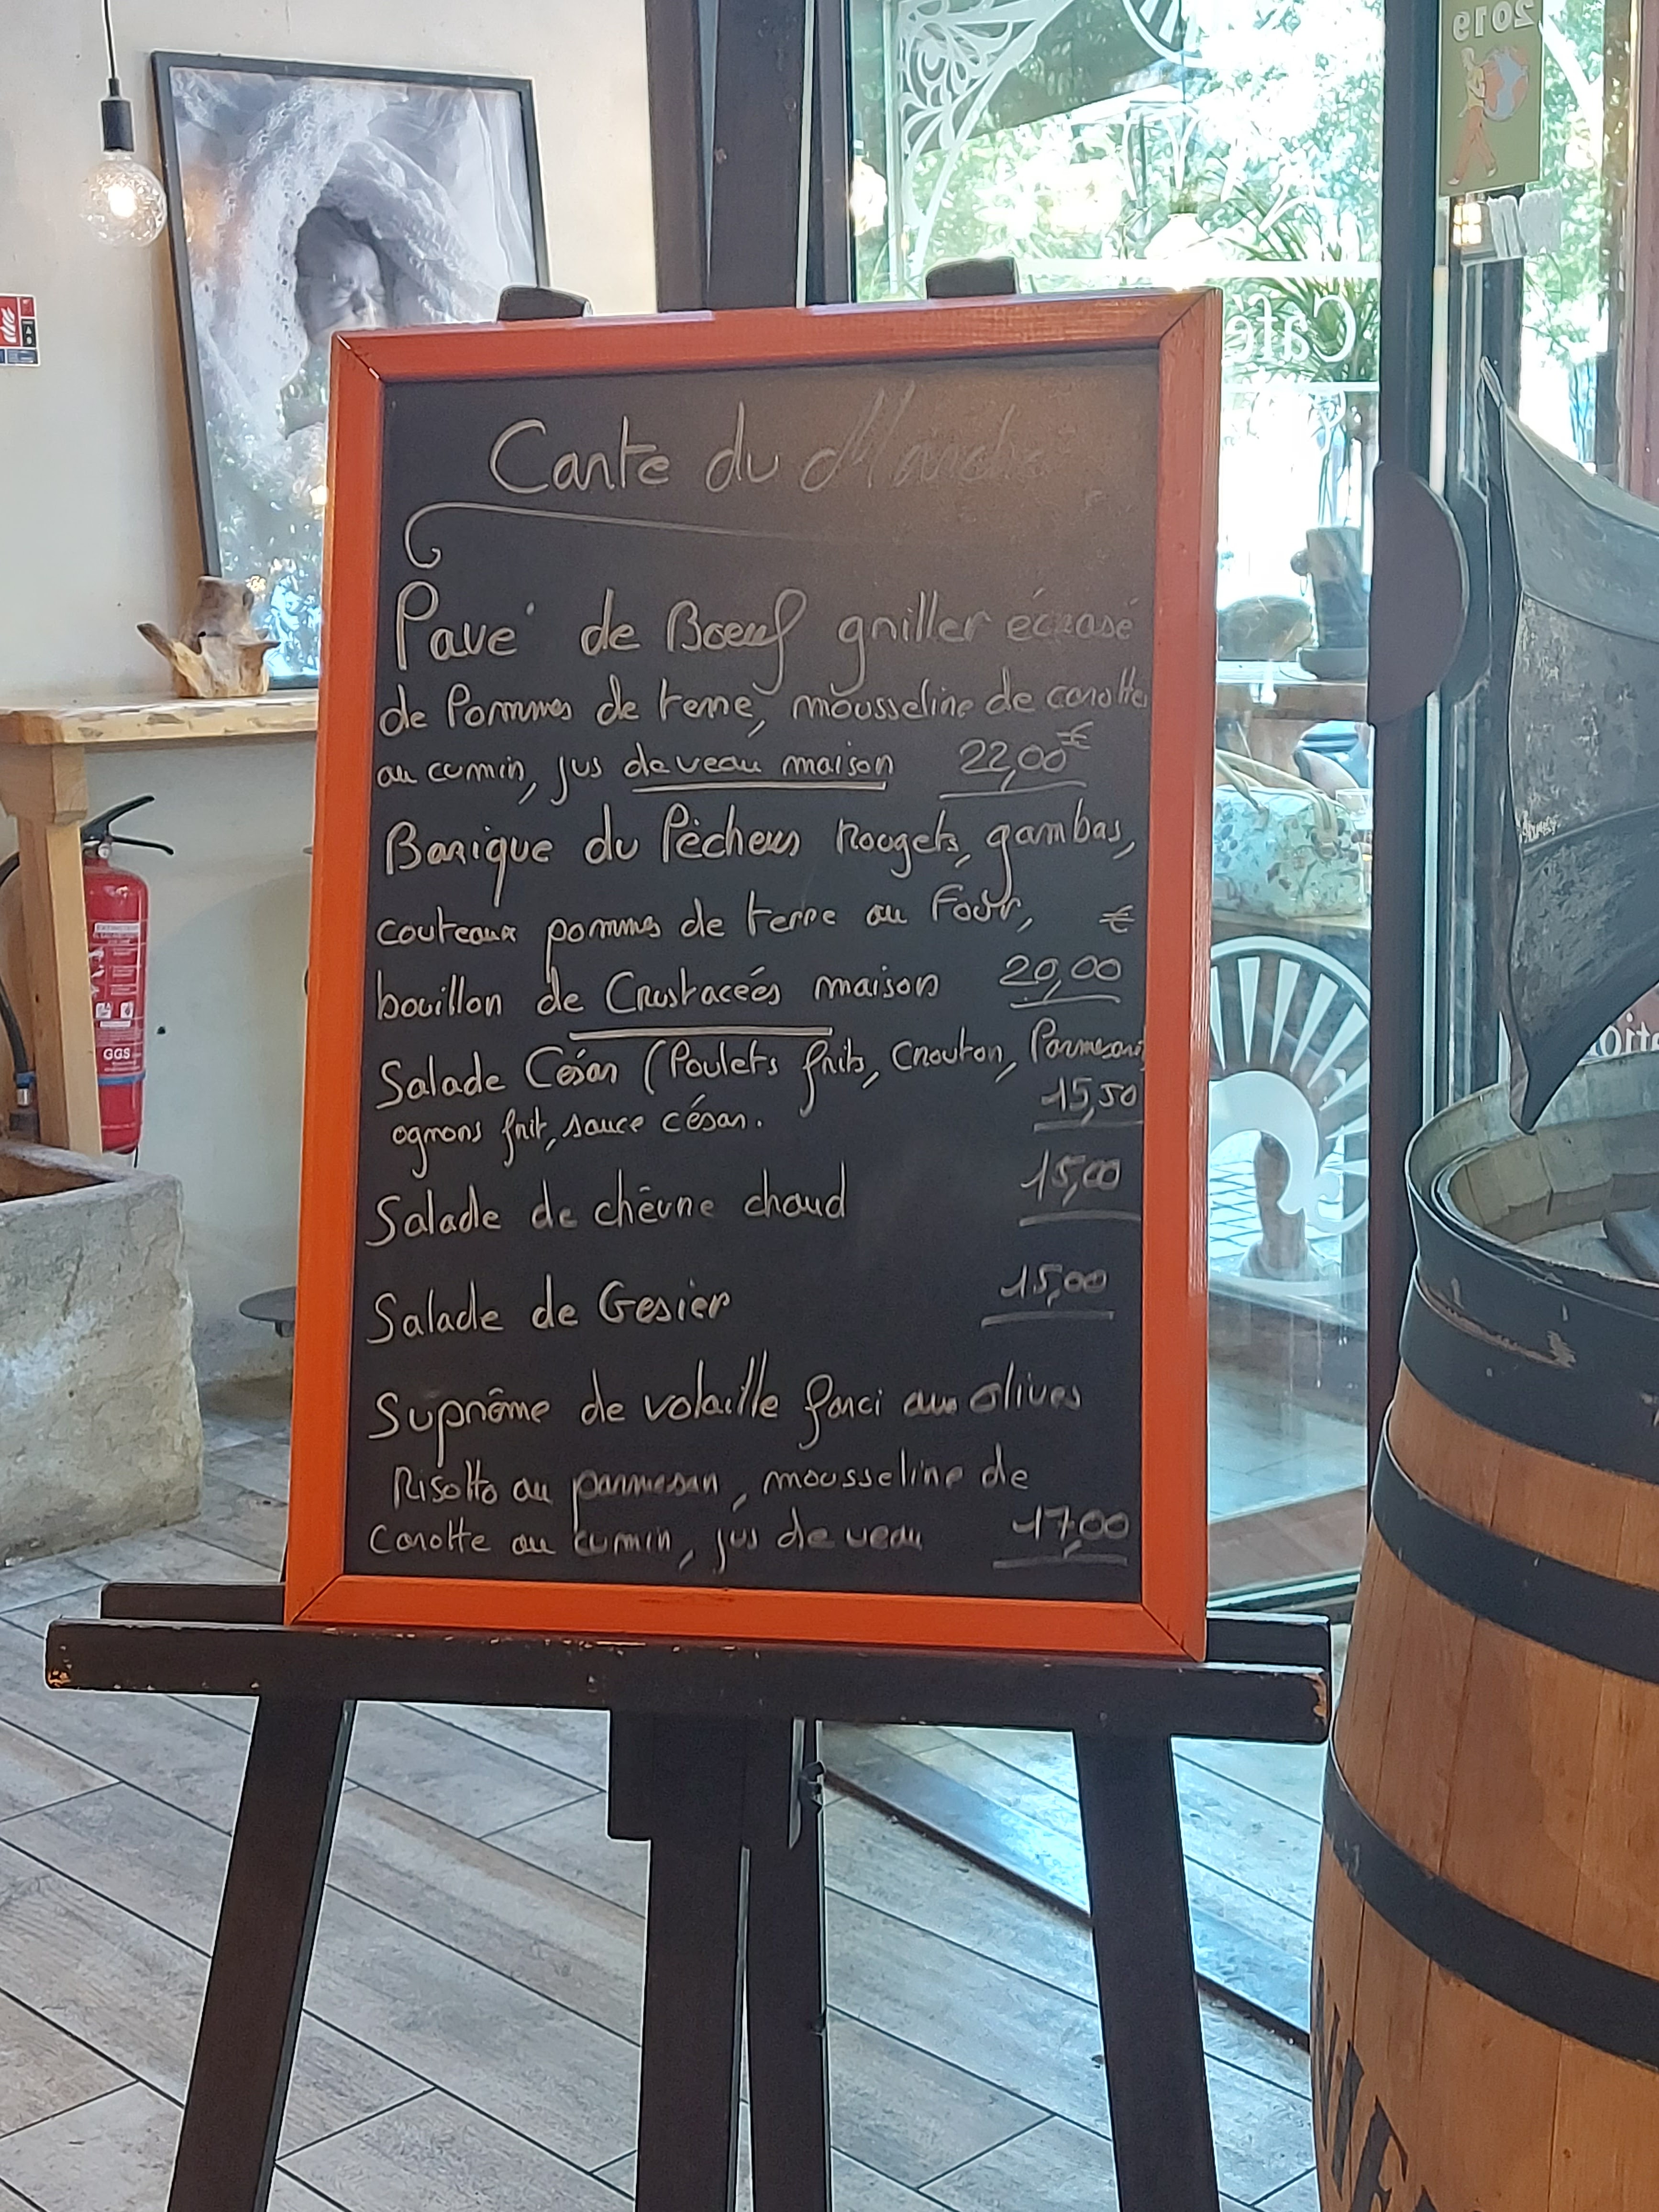 2019
Café
Carte du Marché
Pavé de Bœuf griller écrasé
de Pommes de terre, mousseline de carottes
au cumin, jus de veau maison 22,00€
Barique du Pêcheurs Rougets, gambas,
couteaux pommes de terre au Four, €
bouillon de Crustacéés maison 20,00
Salade César (Poulets frits, Crouton, Parmesan,
ognons frit, sauce césar. 15,50
Salade de chêvre chaud 15,00
Salade de Gesier 15,00
Suprême de volaille farci aux olives
Risotto au parmesan, mousseline de
Carotte au cumin, jus de veau 17,00
GGS